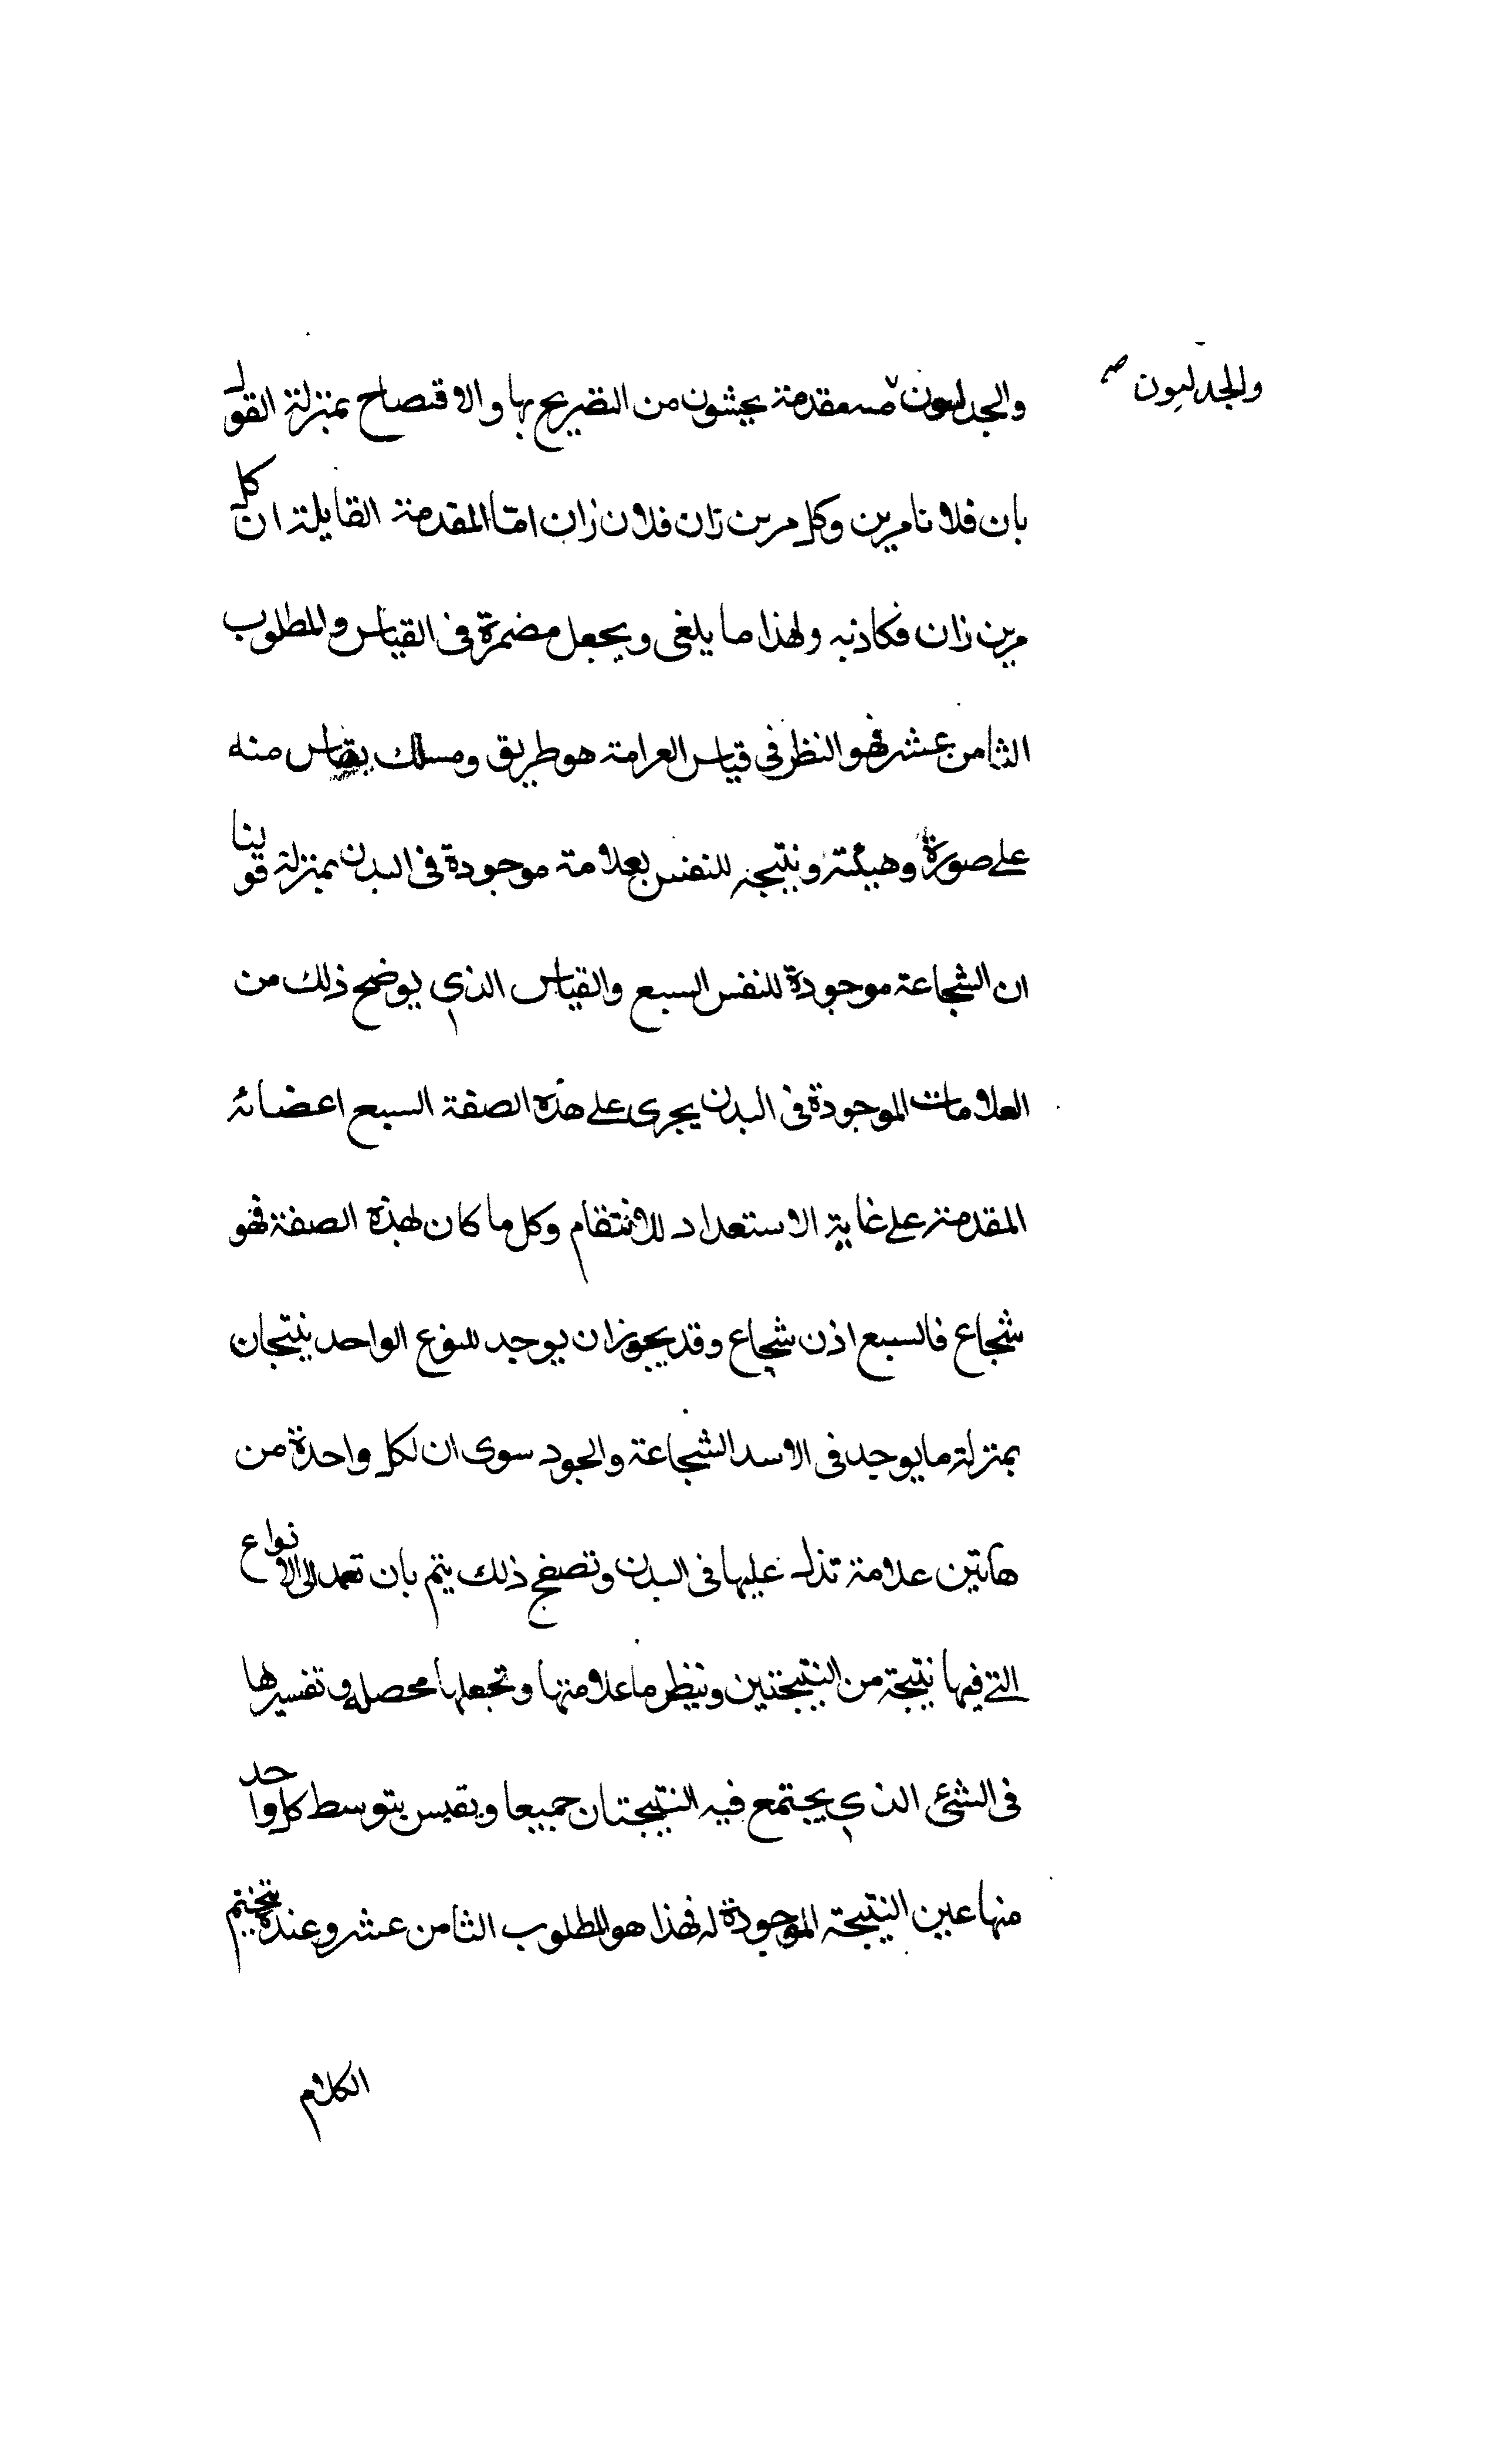 والجدليون صح
والجدليون مقدمة يحبشون من التضريح بها والاقتصاح بمنزلة القول
بان فلانا مرين وكل مرين زان فلان زان اما المقدمة القايلة ان كل
مرين زان فكاذبه ولهذا ما يلغى ويجعل مضمرة فى القياس والمطلوب
الثامن عشر فهو النظر فى قياس العرامة هو طريق ومسلك يقاس منه
على صورة وهيئته ونتيجه للنفس بعلامة موجودة فى البدن بمنزلة قولنا
ان الشجاعة موجودة للنفس السبع والقياس الذى يوضح ذلك من
العلامات الموجودة فى البدن يجرى على هذه الصفة السبع اعضائه
المقدمة على غاية الاستعداد للانتقام وكل ما كان لهذه الصفة فهو
شجاع فالسبع اذن شجاع وقد يجوز ان يوجد للنوع الواحد نتيجان
بمنزلة ما يوجد فى الاسد الشجاعة والجود سوى ان لكل واحدة من
هاتين علامة تدل عليها فى البدن وتصفح ذلك يتم بان تعمد الى الانواع
التى فيها نتيجة من النتيجتين وننظر ما علامتها وتجعلها محصله وتفسيرها
فى الشئ الذى يجتمع فيه النتيجتان جميعا ويقيس بتوسط كل واحد
منها عين النتيجة الموجودة له فهذا هو المطلوب الثامن عشر وعنده نختم
الكلام